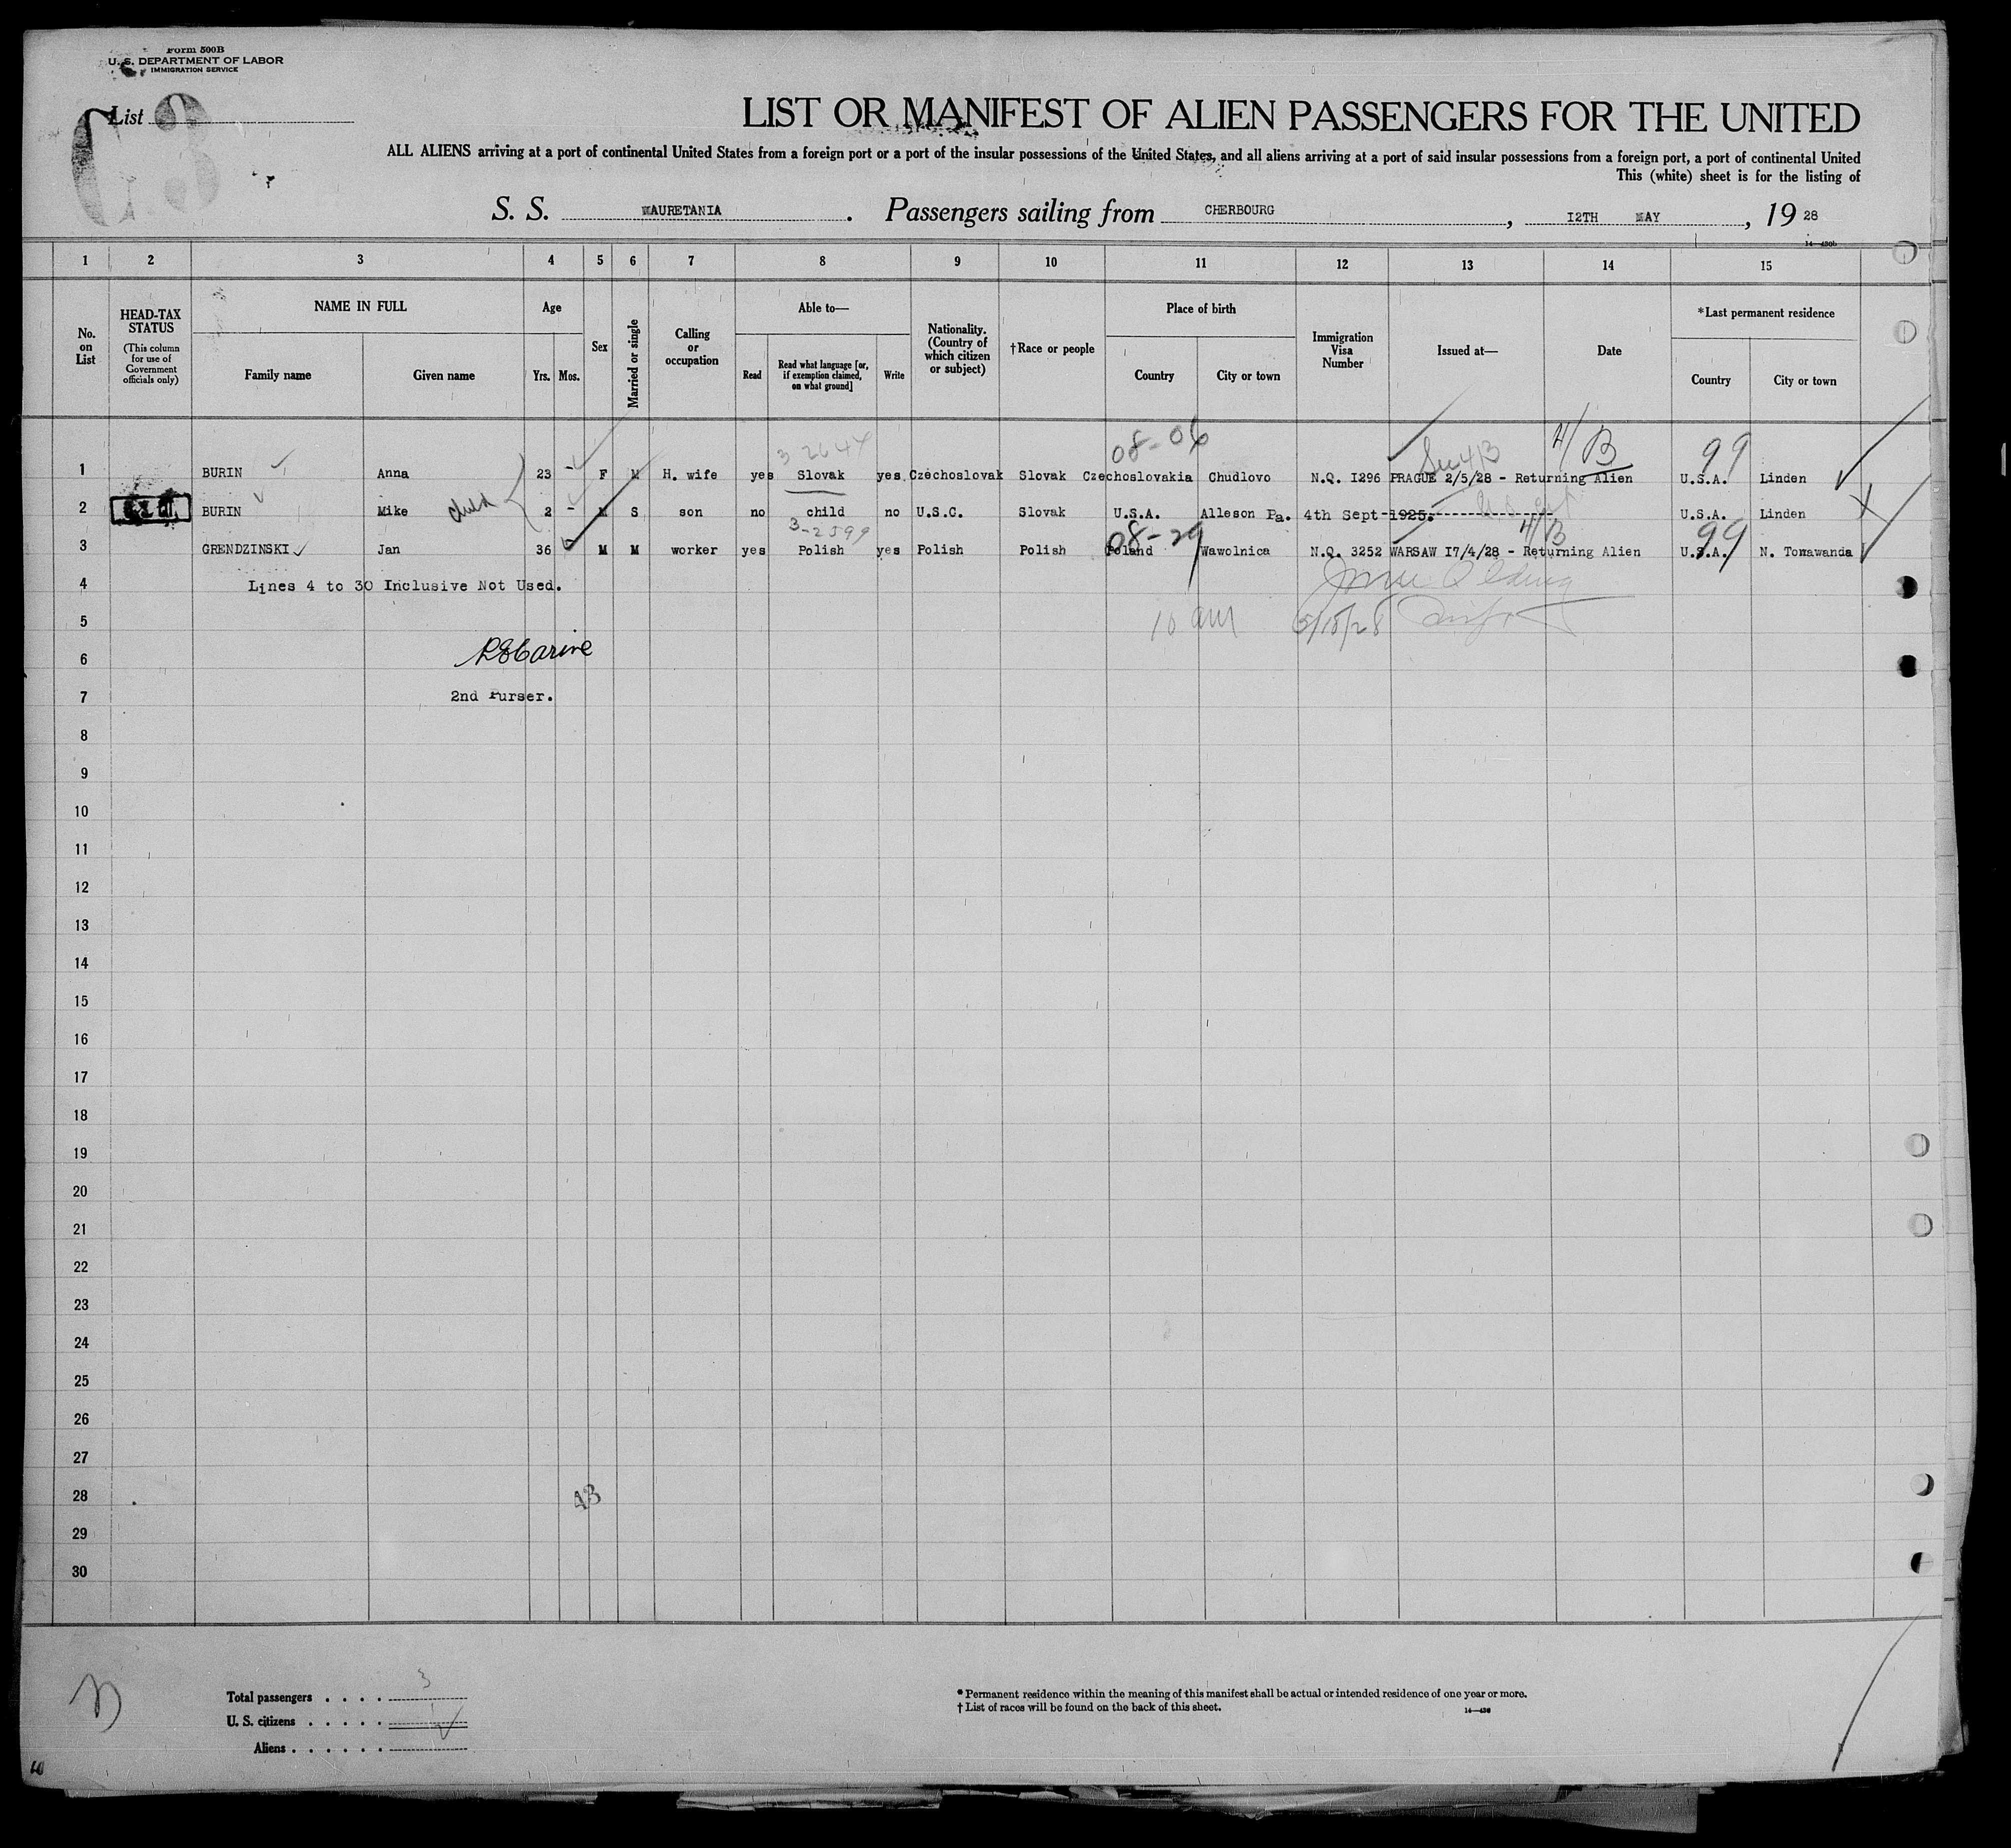 Form 500B
U. S. DEPARTMENT OF LABOR
IMMIGRATION SERVICE
List
LIST OR MANIFEST OF ALIEN PASSENGERS FOR THE UNITED
ALL ALIENS arriving at a port of continental United States from a foreign port or a port of the insular possessions of the United States, and all aliens arriving at a port of said insular possessions from a foreign port, a port of continental United
This (white) sheet is for the listing of
S. S. MAURETANIA. Passengers sailing from CHERBOURG, I2TH MAY, 19 28
14—430b
1 2 3 4 5 6 7 8 9 10 11 12 13 14 15
No. on List
HEAD-TAX STATUS
(This column for use of Government officials only)
NAME IN FULL
Family name Given name
Age
Yrs. Mos.
Sex
Married or single
Calling or occupation
Able to—
Read
Read what language [or, if exemption claimed, on what ground]
Write
Nationality. (Country of which citizen or subject)
†Race or people
Place of birth
Country City or town
Immigration Visa Number
Issued at—
Date
*Last permanent residence
Country City or town
3 2644 08-06 4/B 99
1 BURIN Anna 23 - F M H. wife yes Slovak yes Czechoslovak Slovak Czechoslovakia Chudlovo N.Q. I296 PRAGUE 2/5/28 - Returning Alien U.S.A. Linden
2 BURIN Mike child 2 - M S son no child no U.S.C. Slovak U.S.A. Alleson Pa. 4th Sept 1925. U.S.A. Linden
3-2599 08-29 4/B 99
3 GRENDZINSKI Jan 36 M M worker yes Polish yes Polish Polish Poland Wawolnica N.Q. 3252 WARSAW I7/4/28 - Returning Alien U.S.A. N. Tonawanda
4 Lines 4 to 30 Inclusive Not Used.
5 10 am 5/18/28
6
7 2nd Purser.
8
9
10
11
12
13
14
15
16
17
18
19
20
21
22
23
24
25
26
27
28 43
29
30
Total passengers . . . . 3
U. S. citizens . . . . . 1
Aliens . . . . . .
* Permanent residence within the meaning of this manifest shall be actual or intended residence of one year or more.
† List of races will be found on the back of this sheet.
14—430